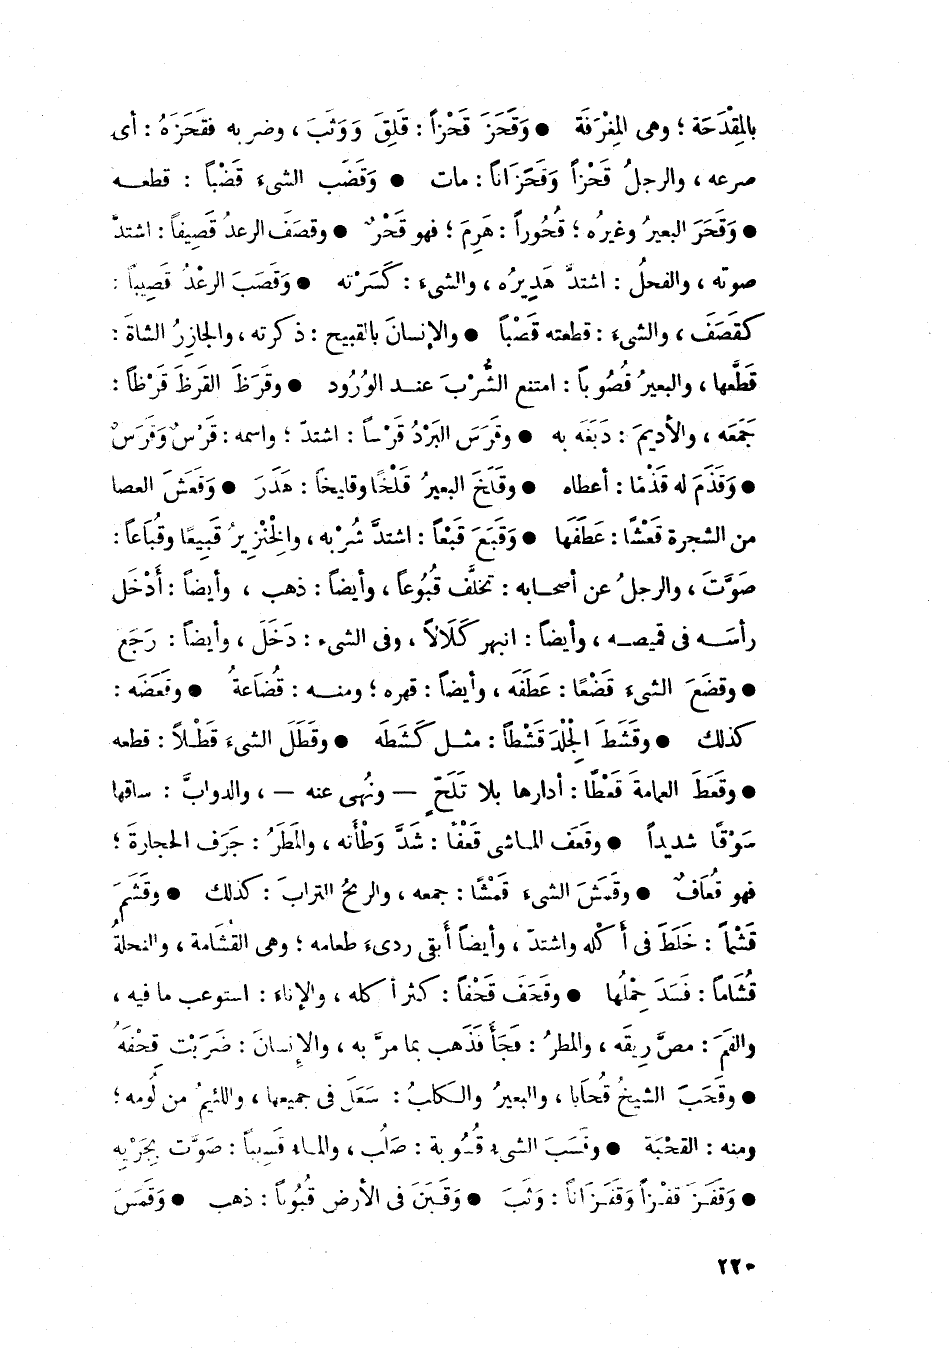 بالمِقْدَحَة ؛ وهى المِغْرَفَة ● وَقَحَزَ قَحْزاً : قَلِقَ وَوَثَبَ ، وضربه فقَحَزَهُ : أى
صرعه ، والرجلُ قَحْزاً وَقَحَزَاناً : مات ● وَقَضَب الشىءَ قَضْباً : قطعــه
● وَقَحَرَ البعيرُ وغيرُه ؛ قُحُوراً : هَرِمَ ؛ فهو قَحْرٌ ● وقصَفَ الرعدُ قَصِيفاً : اشتدّ
صوته ، والفحلُ : اشتدَّ هَدِيرُه ، والشىءَ : كَسَرْته ● وَقَصَبَ الرعْدُ قَصِيباً :
كقَصَفَ ، والشىءَ : قطعته قَصْباً ● والإنسانَ بالقبيح : ذكرته ، والجازِرُ الشاةَ :
قَطَّعها ، والبعيرُ قُصُوباً : امتنع الشُّرْبَ عنــد الوُرُود ● وقَرَظَ القَرظَ قَرْظاً :
جَمَعَه ، والأديمَ : دَبَغَه به ● وقَرَسَ البَرْدُ قَرْساً : اشتدّ ؛ واسمه : قَرْسٌ وَقَرَسٌ
● وَقَذَمَ له قَذْمًا : أعطاه ● وقَلَخَ البعيرُ قَلْخًا وقليخاً : هَدَرَ ● وَقَعَشَ العصا
من الشجرة قَعْشًا : عَطَفَها ● وَقَبَعَ قَبْعاً : اشتدَّ شُرْبه ، والخِنْزِيرُ قَبِيعًا وقُبَاعاً :
صَوَّتَ ، والرجلُ عن أصحــابه : تخلَّف قُبُوعاً ، وأيضاً : ذهب ، وأيضاً : أَدْخَل
رأسَــه فى قميصــه ، وأيضاً : انبهر كَلَالاً ، وفى الشىء : دَخَلَ ، وأيضاً : رَجَعَ
● وقضَعَ الشىءَ قَضْعًا : عَطَفَه ، وأيضاً : قهره ؛ ومنــه : قُضَاعةُ ● وقَعَضَه :
كذلك ● وقشَطَ الجِلْدَ قَشْطاً : مثــل كَشَطَه ● وقَطَلَ الشىءَ قَطْلاً : قطعه
● وقَعَطَ العمامةَ قَعْطًا : أدارها بلا تَلَحّ — ونُهى عنه — ، والدوابَّ : ساقها
سَوْقًا شديداً ● وقعَف المـاشى قَعْفًا : شَدَّ وَطْأَته ، والمَطَرُ : جَرَف الحجارةَ ؛
فهو قُعَافٌ ● وقَمَشَ الشىءَ قَمْشًا : جمعه ، والريحُ الترابَ : كذلك ● وقَشَمَ
قَشْماً : خَلَطَ فى أَكْله واشتدّ ، وأيضاً أَبقى ردىءَ طعامه ؛ وهى القُشَامة ، والنحلةُ
قُشَاماً : فَسَدَ حِمْلُها ● وقَحَف قَحْفاً : كثر أكله ، والإناءَ : استوعب ما فيه ،
والفَمَ : مصَّ رِيقَه ، والمطرُ : فَجَأَ فَذَهب بما مرّ به ، والإنسانَ : ضَرَبْت قِحْفَهُ
● وقَحَبَ الشيخُ قُحَابا ، والبعيرُ والكلبُ : سَعَلَ فى جميعها ، واللئيمُ من لُومه ؛
ومنه : القَحْبَة ● وقَسَبَ الشىء قُسُوبة : صَلُب ، والمـاء قَسِيباً : صَوَّت بِجَرْيِه
● وَقَفَزَ قَفْزاً وَقَفَزَاناً : وَثَبَ ● وَقَبَنَ فى الأرض قُبُوناً : ذهب ● وَقَمَسَ
٢٢٠